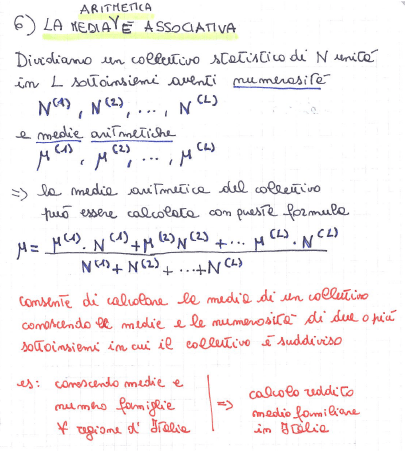 ARITMETICA
6) LA MEDIA È ASSOCIATIVA
Dividiamo un collettivo statistico di N unità
in L sottoinsiemi aventi numerosità
N⁽¹⁾, N⁽²⁾, ..., N⁽ᴸ⁾
e medie aritmetiche
μ⁽¹⁾, μ⁽²⁾, ..., μ⁽ᴸ⁾
=> la media aritmetica del collettivo
può essere calcolata con questa formula
μ = μ⁽¹⁾·N⁽¹⁾+μ⁽²⁾N⁽²⁾+... μ⁽ᴸ⁾·N⁽ᴸ⁾
N⁽¹⁾+N⁽²⁾+...+N⁽ᴸ⁾
consente di calcolare la media di un collettivo
conoscendo le medie e le numerosità di due o più
sottoinsiemi in cui il collettivo è suddiviso
es: conoscendo medie e
numero famiglie
∀ regione d'Italia
=> calcolo reddito
medio familiare
in Italia